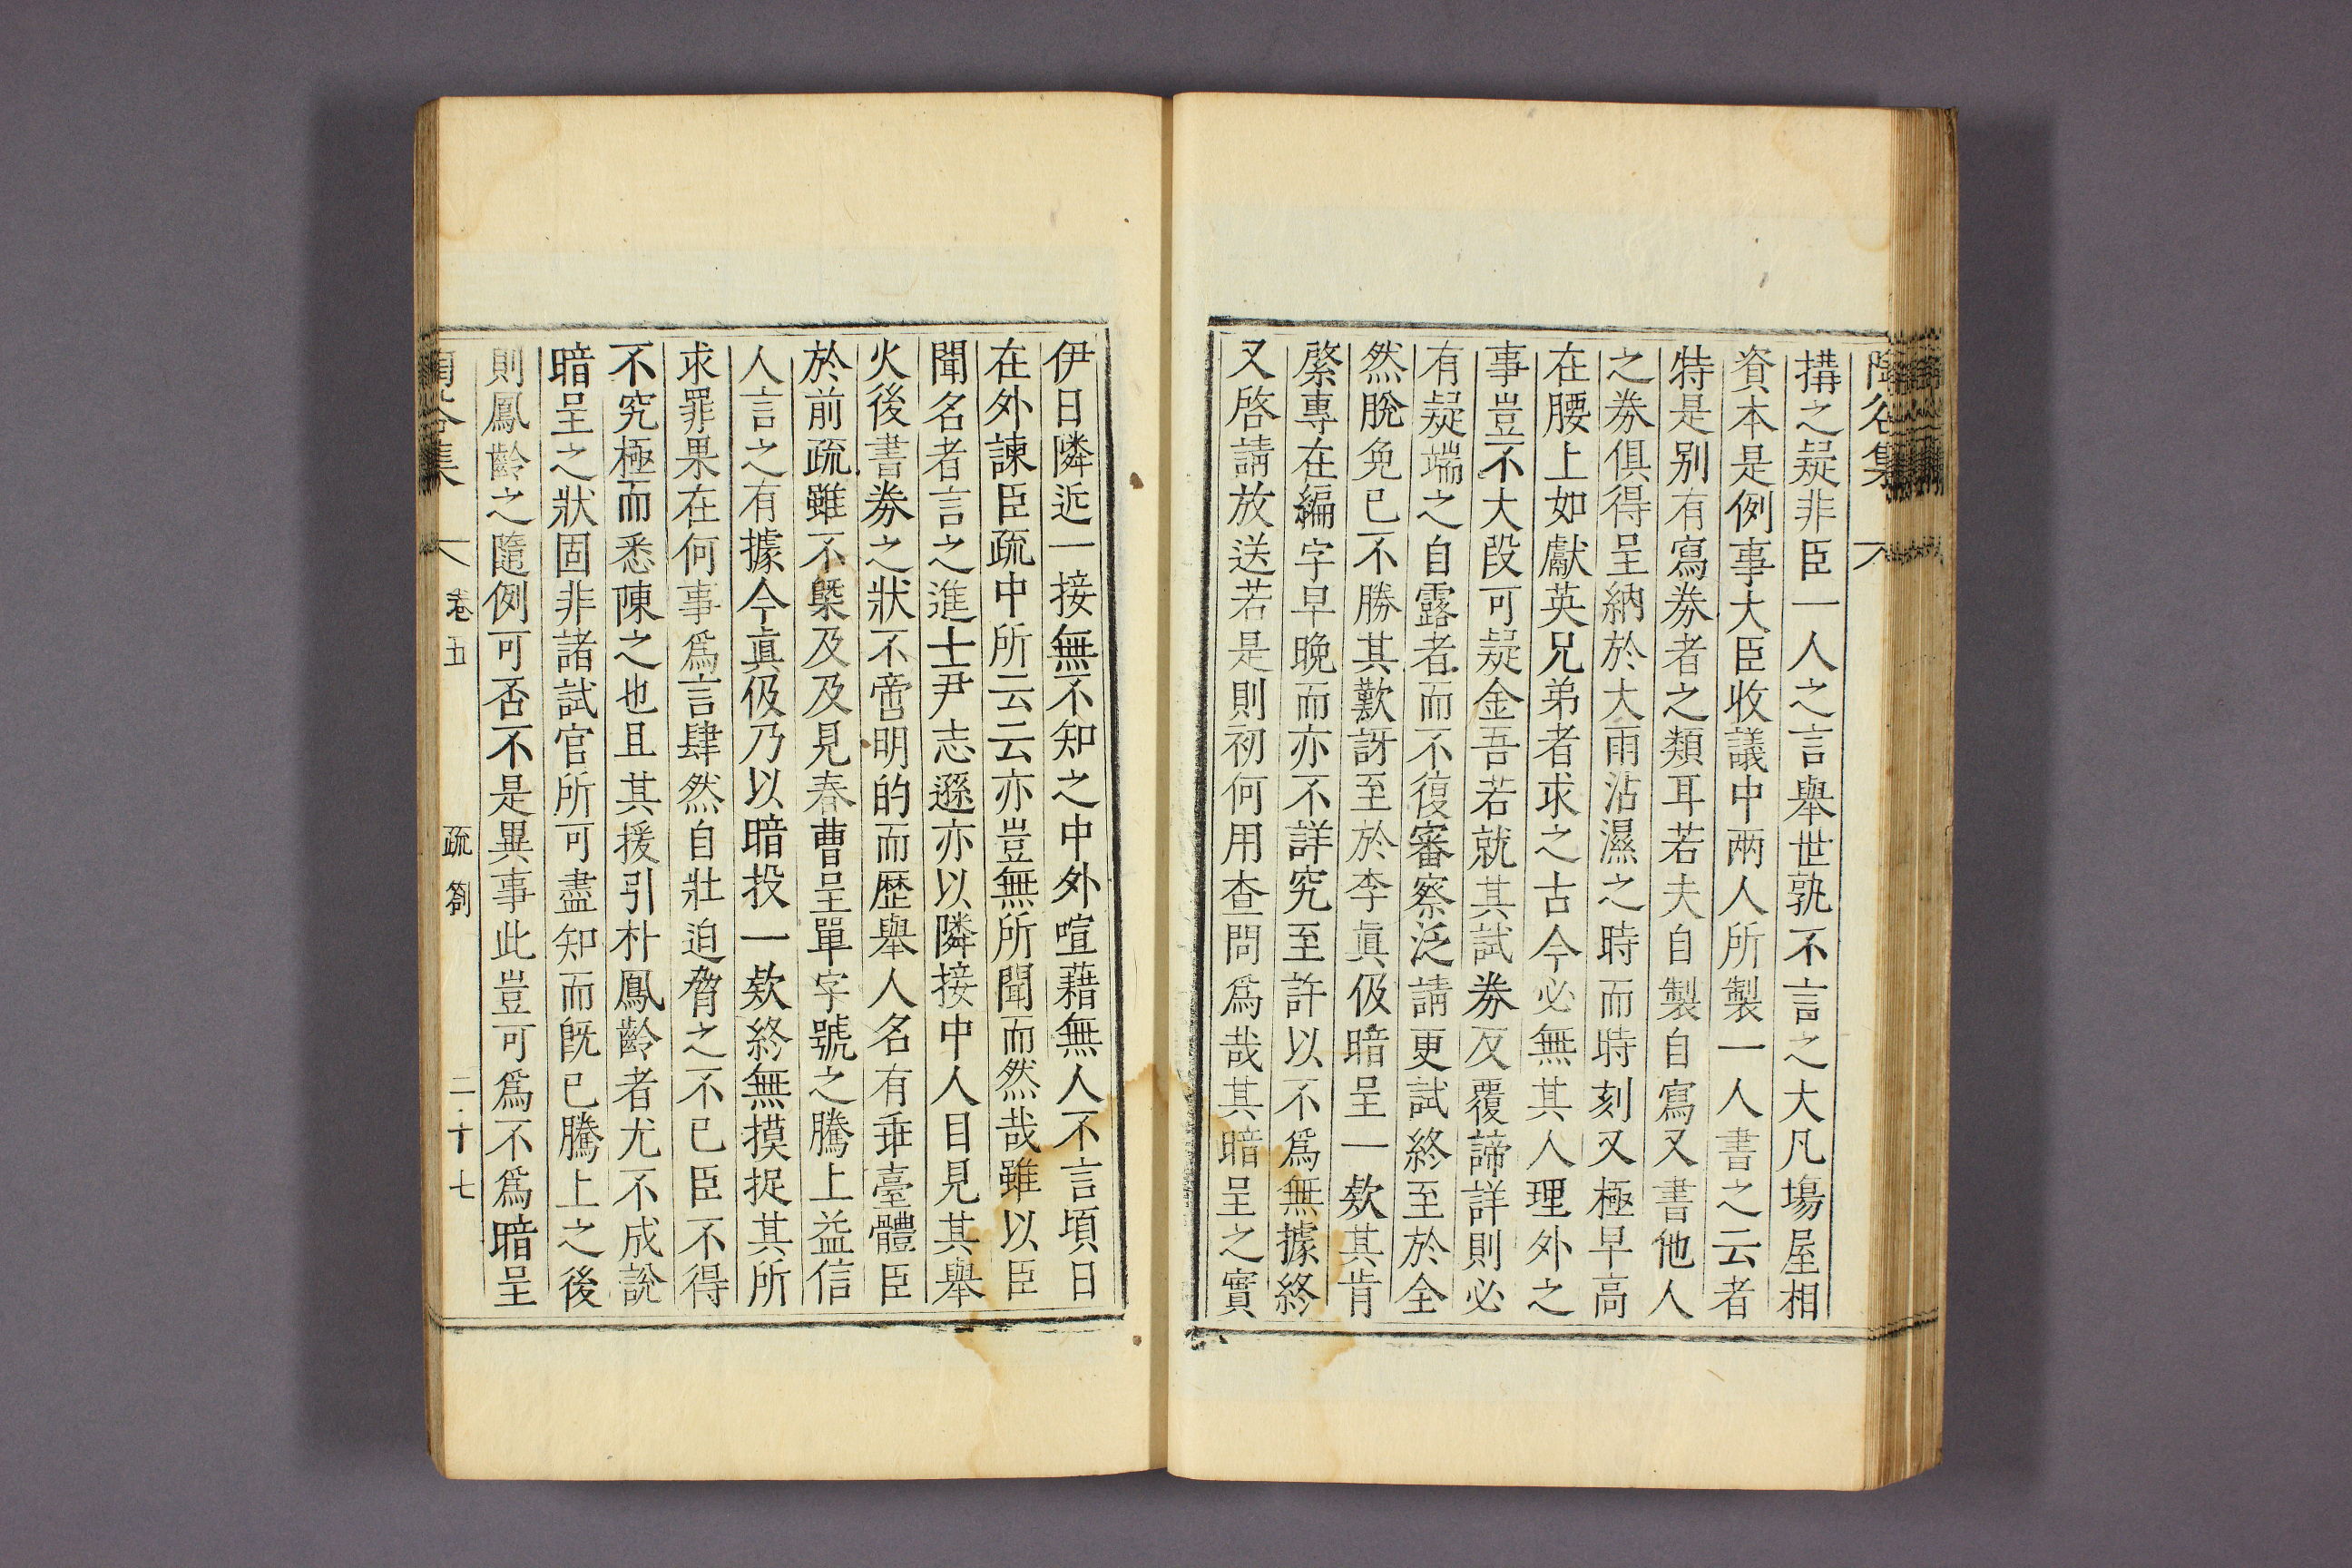 搆之疑非臣一人之言舉世孰不言之大凡塲屋相
資本是例事大臣收議中兩人所製一人書之云者
特是别有寫券者之類耳若夫自製自寫又書他人
之券俱得呈納於大雨沾濕之時而時刻又極早高
在腰上如獻英兄弟者求之古今必無其人理外之
事豈不大段可疑金吾若就其試券反覆諦詳則必
有疑端之自露者而不復審察泛請更試終至於全
然脫免已不勝其歎訝至於李眞伋暗呈一欵其肯
綮專在編字早晩而亦不詳究至許以不爲無據終
又啓請放送若是則初何用查問爲哉其暗呈之實
伊日隣近一接無不知之中外喧藉無人不言頃日
在外諫臣疏中所云云亦豈無所聞而然哉雖以臣
聞名者言之進士尹志遜亦以隣接中人目見其舉
火後書券之狀不啻明的而歴舉人名有乖臺體臣
於前疏雖不槩及及見春曹呈單字號之騰上益信
人言之有據今眞伋乃以暗投一欵終無摸捉其所
求罪果在何事爲言肆然自壯迫脅之不已臣不得
不究極而悉陳之也且其援引朴鳳齡者尤不成說
暗呈之狀固非諸試官所可盡知而旣已騰上之後
則鳳齡之隨例可否不是異事此豈可爲不爲暗呈
集 卷五 疏劄 二十七